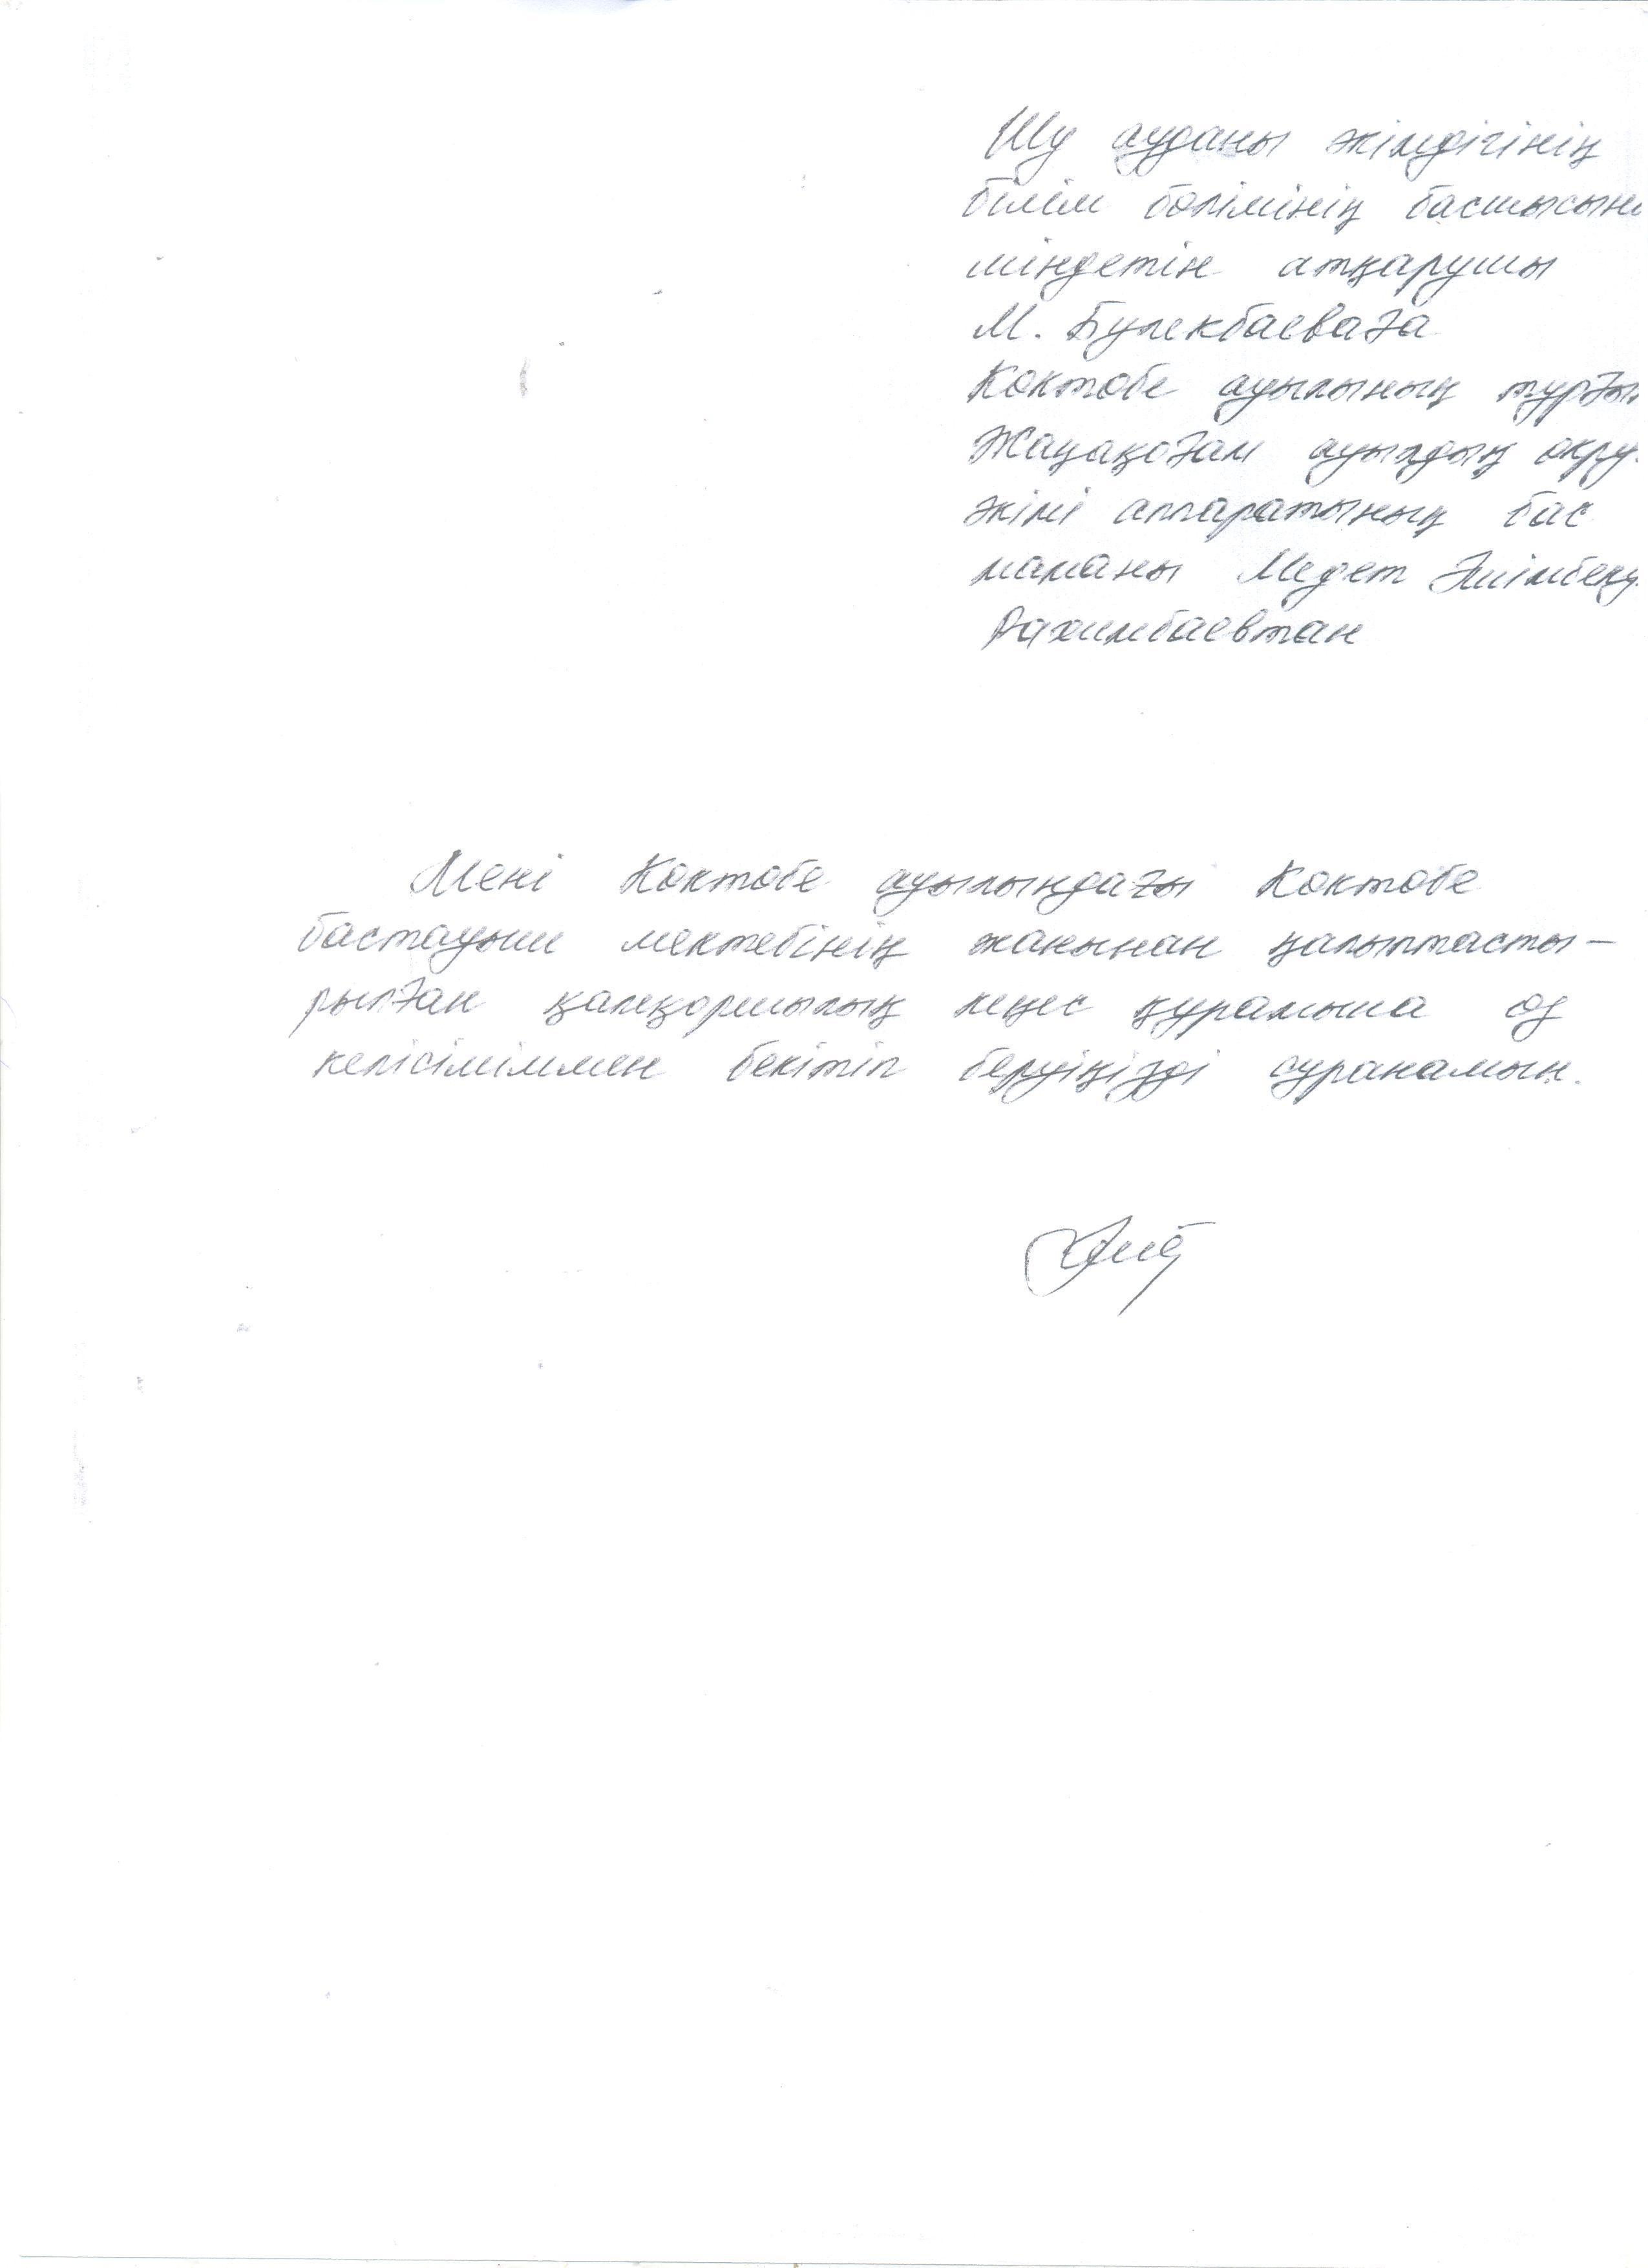 Шу ауданы әкімдігінің
білім бөлімінің бастысын
міндетін атқарушы
М. Булекбаеваға
Көктөбе ауылының тұрғы
Жаңақоғам ауылдық окру
әкімі аппаратының бас
маманы Медет Әшімбекұ
Рахимбаевтан
Мені Көктөбе ауылындағы Көктөбе
бастауыш мектебінің жанынан қалыптасты-
рылған қамқоршылық кеңес құрамына өз
келісіміммен бекітіп беруіңізді сұранамын.